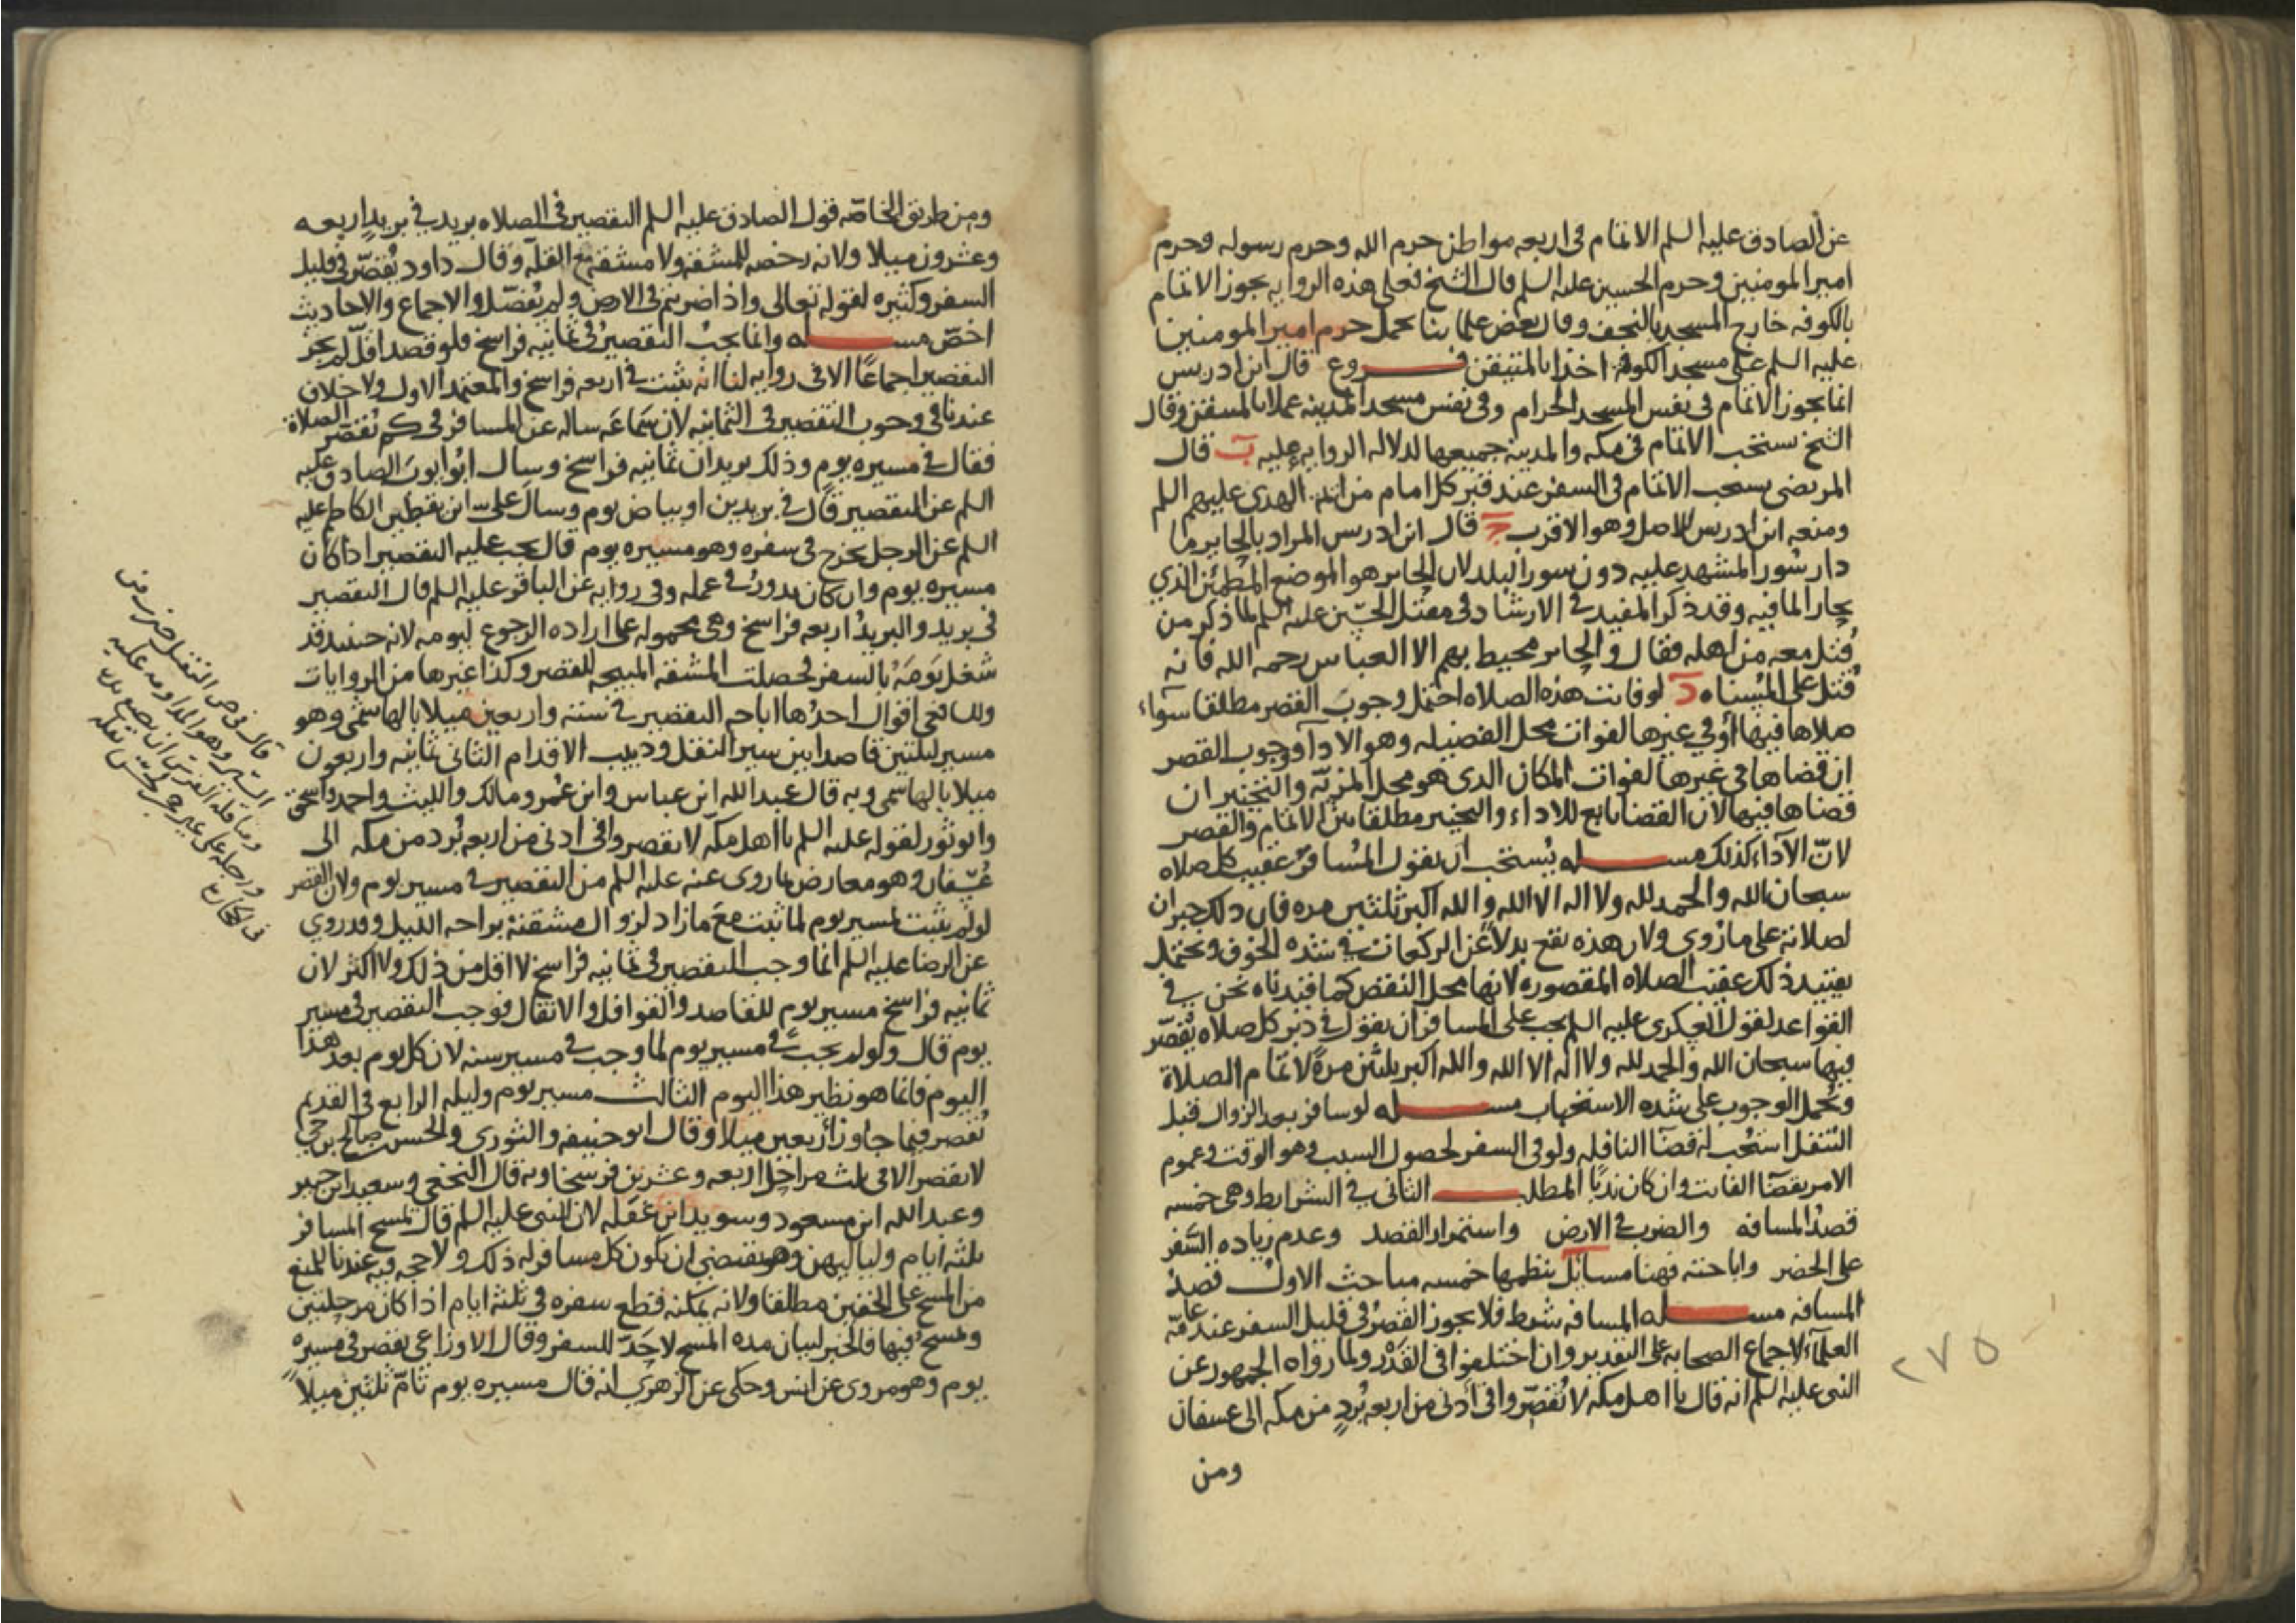 عن الصادق عليه السلم الاتمام فى اربعه مواطن حرم الله وحرم رسوله وحرم
امير المومنين وحرم الحسين عليه السلم قال الشيخ فعلى هذه الروايه يجوز الاتمام
بالكوفه خارج المسجد بالنجف وقال بعض علمائنا يحمل حرم امير المومنين
عليه السلم على مسجد الكوفه اخذا بالمتيقن فـــروع قال ابن ادريس
انما يجوز الاتمام فى نفس المسجد الحرام وفى نفس مسجد المدينه عملا بالمتيقن وقال
الشيخ يستحب الاتمام فى مكه والمدينه جميعها لدلاله الروايه عليه ب قال
المرتضى يستحب الاتمام فى السفر عند قبر كل امام من ائمه الهدى عليهم السلم
ومنعه ابن ادريس للاصل وهو الاقرب ج قال ابن ادريس المراد بالحاير ما
دار سُور المشهد عليه دون سور البلد لان الحاير هو الموضع المطمئن الذي
يحار الما فيه وقد ذكر المفيد فى الارشاد فى مقتل الحسين عليه السلم لما ذكر من
قُتل معه من اهله فقال والحاير محيط بهم الا العباس رحمه الله فانه
قُتل على المُسناه د لو فاتت هذه الصلاه احتمل وجوبَ القصر مطلقا سوآء
صلاها فيها أو في غيرها لفوات محل الفضيله وهو الادآ ووجوب القصر
ان قضاها في غيرها لفوات المكان الذى هو محل المزيّه والتخيير ان
قضاها فيها لان القضا تابع للاداء والتخيير مطلقا بين الاتمام والقصر
لانّ الآداء كذلك مســـله يُستحب ان يقول المُسافر عقيب كل صلاه
سبحان الله والحمد لله ولا اله الا الله والله اكبر ثلثين مره فان ذلك جبران
لصلاته على ما رُوى ولان هذه تقع بدلاً عن الركعات فى شده الخوف ويحتمل
تقييد ذلك عقيب الصلاه المقصوره لانها محل النقص كما قيدناه نحن فى
القواعد لقول العسكري عليه السلم يجب على المسافر ان يقول فى دبر كل صلاه يُقصّر
فيها سبحان الله والحمد لله ولا اله الا الله والله اكبر ثلثين مرةً لاتمام الصلاة
ويُحمل الوجوب على شده الاستحباب مســـله لو سافر بعد الزوال قبل
التنفل استُحب له قضآ النافله ولو فى السفر لحصول السبب وهو الوقت وعموم
الامر بقضآ الفائت وان كان ندبًا المطلـــب الثانى فى الشرايط وهى خمسه
قصدُ المسافه والضرب فى الارض واستمرار القصد وعدم زياده السَّفر
على الحضر واباحته فهنا مسائل ينظمها خمسه مباحث الاول قصدُ
المسافه مســـله المسافه شرط فلا يجوز القصرُ فى قليل السفر عند عامّه
العلمآء لاجماع الصحابه على التقدير وان اختلفوا فى القَدْر ولما رواه الجمهور عن
النبى عليه السلم انه قال يا اهل مكه لا تُقصّروا فى أدنى من اربعه بُردٍ من مكه الى عسفان
ومن
٢٧٥
ومن طريق الخاصّه قول الصادق عليه السلم التقصير فى الصلاه بريد في بريد اربعه
وعشرون ميلا ولانه رخصه للمشقه ولا مشقه مع القله وقال داود يُقصّر فى قليل
السفر وكثيره لقوله تعالى واذا ضربتم فى الارض ولم يُفصّل والاجماع والاحاديث
اخصّ مســـله وانما يجب التقصير فى ثمانيه فراسخ فلو قصد اقلّ لم يجز
التقصير اجماعًا الا فى روايه لنا انه يثبت فى اربعه فراسخ والمعتمد الاول ولا خلاف
عندنا فى وجوب التقصير فى الثمانيه لان سَمَاعَه ساله عن المسافر فى كم يُقصّر الصلاة
فقال فى مسيره يوم وذلك بريدان ثمانيه فراسخ وسال ابو ايوب الصادق عليه
السلم عن التقصير قال في بريدين او بياض يوم وسال على بن يقطين الكاظم عليه
السلم عن الرجل يخرج فى سفره وهو مسيره يوم قال يجب عليه التقصير اذا كان
مسيره يوم وان كان يدور فى عمله وفى روايه عن الباقر عليه السلم قال التقصير
فى بريد والبريدُ اربعه فراسخ وهى محموله على اراده الرجوع ليومه لانه حينئذ قد
شغل يَومَهُ بالسفر فحصلت المشقه المبيحه للقصر وكذا غيرها من الروايات
وللشافعى اقوال احدُها اباحه التقصير فى سته واربعين ميلا بالهاشمى وهو
مسير ليلتين قاصدا بين سير النقل ودبيب الاقدام الثانى ثمانيه واربعون
ميلا بالهاشمى وبه قال عبد الله ابن عباس وابن عُمر ومالك والليث واحمد واسحق
وابو ثور لقوله عليه السلم يا اهل مكّه لا تقصروا فى ادنى من اربعه بُرد من مكه الى
عُسفان وهو معارض بما روى عنه عليه السلم من التقصير فى مسير يوم ولان القصر
لو لم يثبت لمسير يوم لما ثبت معَ ما زاد لزوال مشقته براحه الليل وقد روي
عن الرضا عليه السلم انما وجب التقصير فى ثمانيه فراسخ لا اقل من ذلك ولا اكثر لان
ثمانيه فراسخ مسير يوم للقاصد والقوافل والاثقال فوجب التقصير فى مسير
يوم قال ولو لم يجب فى مسير يوم لما وجب فى مسير سنه لان كل يوم بعد هذا
اليوم فانما هو نظير هذا اليوم الثالث مسير يوم وليله الرابع فى القديم
تُقصر فيما جاوز اربعين ميلا وقال ابو حنيفه والثوري والحسن بن صالح بن حي
لا يقصر الا فى ثلث مراحل اربعه وعشرين فرسخا وبه قال النخعي وسعيد ابن جبير
وعبد الله ابن مسعود وسويد ابن غفله لان النبى عليه السلم قال يمسح المسافر
ثلثه ايام ولياليهن وهو يقتضي ان يكون كل مسافر له ذلك ولا حجه فيه عندنا للمنع
من المسح على الخفين مطلقا ولانه يمكنه قطع سفره فى ثلثه ايام اذا كان مرحلتين
ويمسحُ فيها فالخبر لبيان مده المسح لا حَدّ للسفر وقال الاوزاعي يقصر فى مسيره
يوم وهو مروى عن انس وحكى عن الزهري انه قال مسيره يوم تامّ ثلثين ميلاً
قال فى ص النقل ضرب من
السير وهو المداومه عليه
ومناقله الفرس ان يضع يده
ورجله على غير حجر لحسن نقله
فى الحجاره